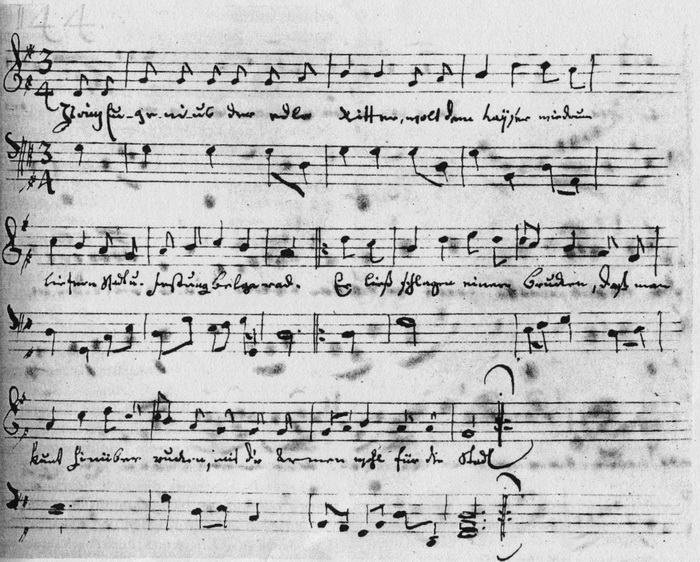 144.
3 4
Prinz Eu-ge-ni-us der edle Ritter, wolt dem Kayser wiedrum
3 4
liefern Stadt u. Festung Belgerad. Er ließ schlagen einen Brucken, daß man
kunt hinüber rucken, mit der Armee wohl für die Stadt